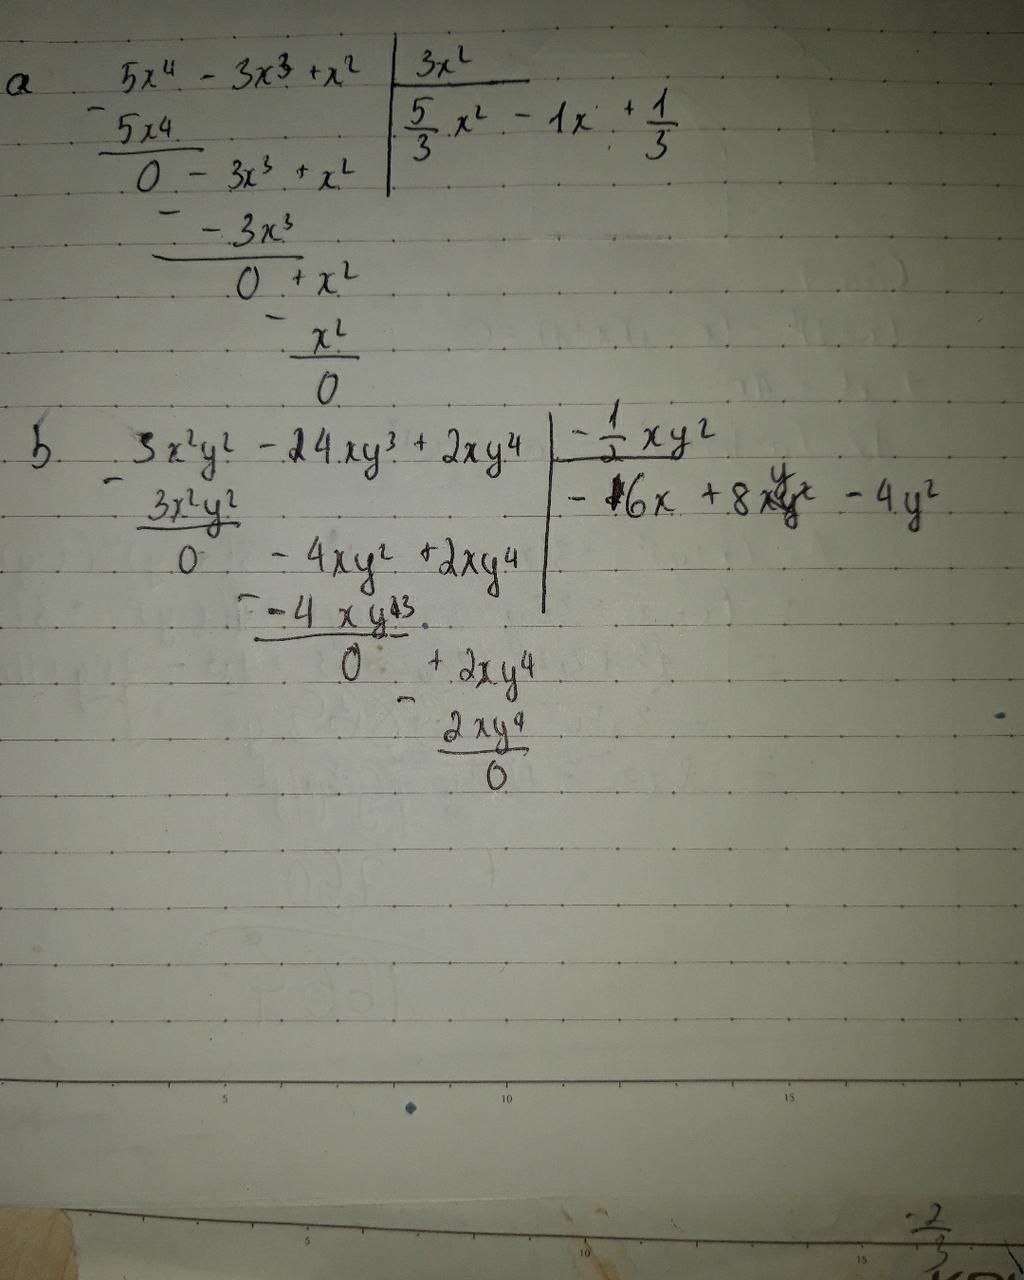 a 5x⁴ - 3x³ + x² | 3x²
- 5x⁴ 5/3 x² - 1x + 1/3
0 - 3x³ + x²
- - 3x³
0 + x²
- x²
0
b. 3x²y² - 4xy³ + 2xy⁴ | - 1/2 xy²
- 3x²y² - 6x + 8y - 4y²
0 - 4xy² + 2xy⁴
- - 4xy³
0 + 2xy⁴
- 2xy⁴
0
5 10 15
5 10 15
- 2/3